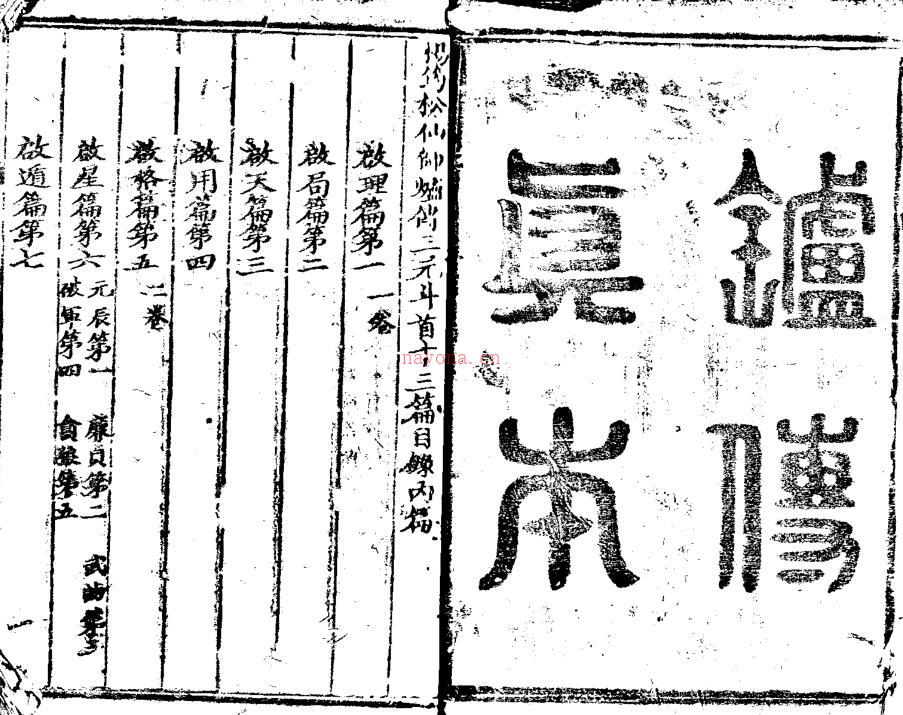 鑪傳
真本
楊筠松仙師爐傳三元斗首十三篇目錄丙篇
啟理篇第一 一卷
啟局篇第二
啟天篇第三
啟用篇第四
啟格篇第五 二卷
啟星篇第六 元辰第一 廉貞第二 武曲第三
破軍第四 貪狼第五
啟遁篇第七
nayona.cn